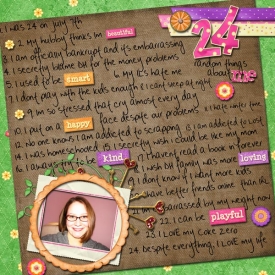 1. I was 24 on July 7th
2. my hubby thinks I'm beautiful
24
random things about me
3. I am officially bankrupt and it's embarrassing
4. I secretly blame him for the money problems
5. I used to be smart
6. My it's hate me
7. I don't play with the kids enough
8. I can't sleep at night
9. I'm so stressed that I cry almost every day
10. I put on a happy face despite our problems
11. I hate winter time
12. No one knows I am addicted to scrapping
13. I'm addicted to Lost
14. I was homeschooled
15. I secretly wish I could be like my mom
16. I always try to be kind
17. I haven't read a book in forever
18. I wish my family was more loving
19. I don't know if I want more kids
20. I have better friends online than IRL
21. I'm embarrassed by my weight now
22. I can be playful
23. I LOVE my Coke Zero
24. Despite everything, I LOVE my life